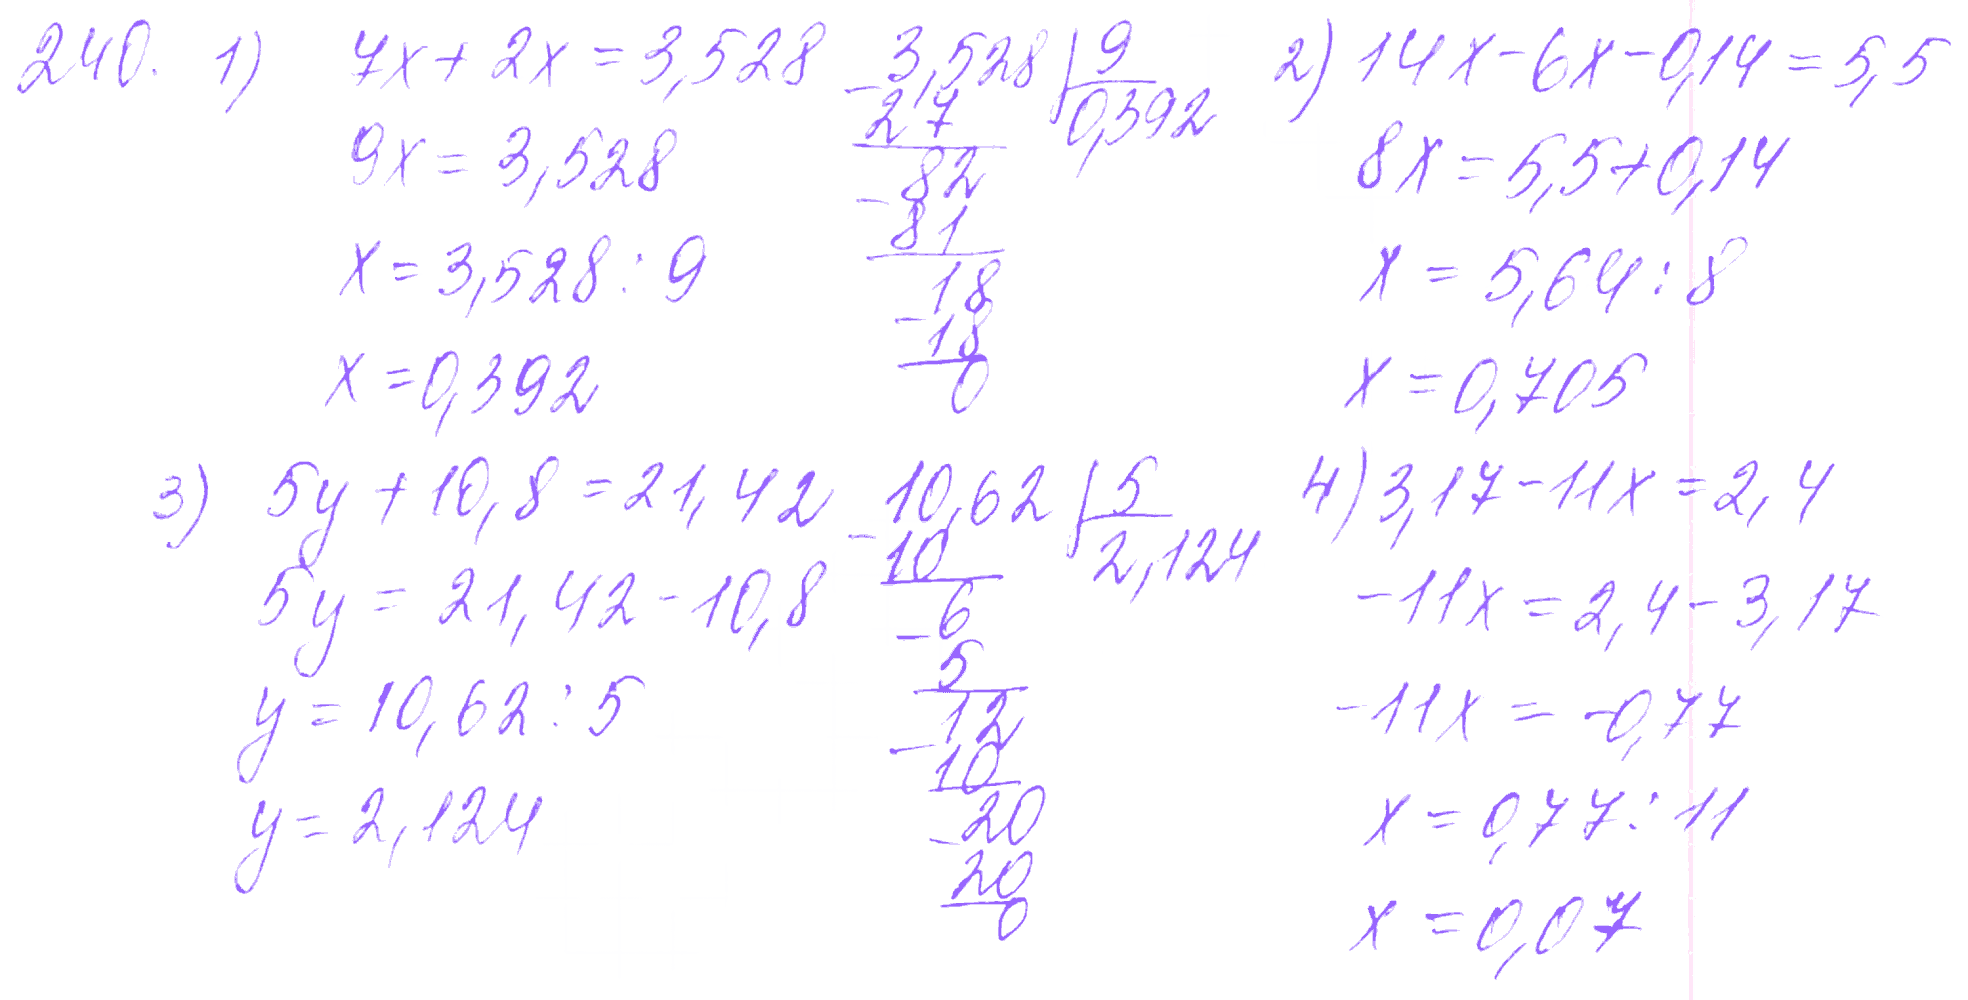 240. 1) 7x + 2x = 3,528
9x = 3,528
x = 3,528 : 9
x = 0,392
3,528 | 9
27 0,392
82
81
18
18
0
2) 14x - 6x - 0,14 = 5,5
8x = 5,5 + 0,14
x = 5,64 : 8
x = 0,705
3) 5y + 10,8 = 21,42
5y = 21,42 - 10,8
y = 10,62 : 5
y = 2,124
10,62 | 5
10 2,124
6
5
12
10
20
20
0
4) 3,17 - 11x = 2,4
-11x = 2,4 - 3,17
-11x = -0,77
x = 0,77 : 11
x = 0,07